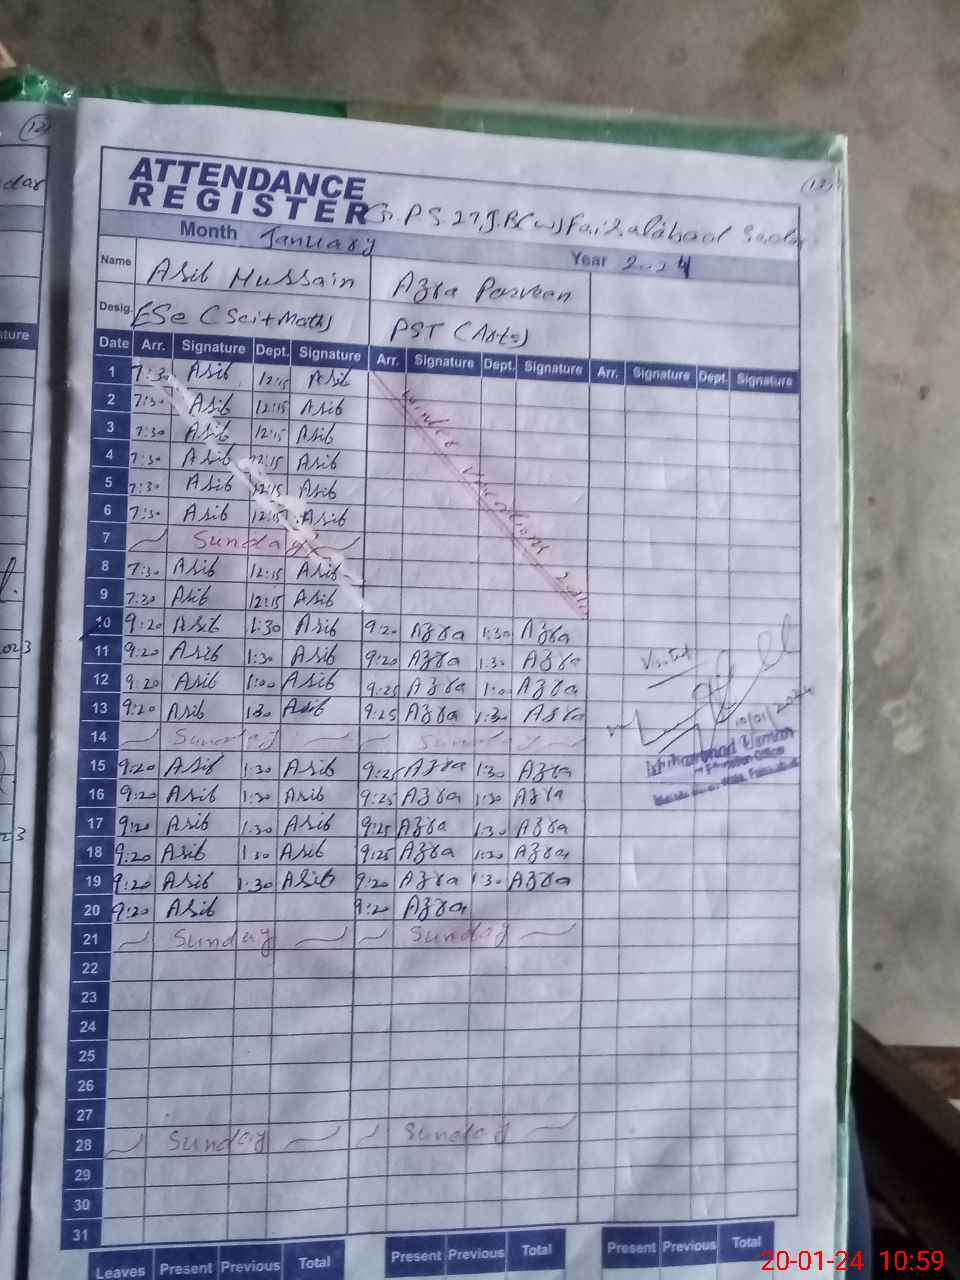 12
(12)
dar
ATTENDANCE
REGISTER G.P.S. 27 J.B (W) Faisalabad Sadar
Month January Year 2024
Name Asib Hussain Azra Parveen
Desig. ESe (Sci+Math) PST (Arts)
ture
Date Arr. Signature Dept. Signature Arr. Signature Dept. Signature Arr. Signature Dept. Signature
1 7:30 Asib 12:15 Asib
2 7:30 Asib 12:15 Asib
3 7:30 Asib 12:15 Asib
4 7:30 Asib 12:15 Asib
5 7:30 Asib 12:15 Asib
6 7:30 Asib 12:15 Asib
7 Sunday
8 7:30 Asib 12:15 Asib
9 7:30 Asib 12:15 Asib
winter vacations
10 9:20 Asib 1:30 Asib 9:20 Azra 1:30 Azra
11 9:20 Asib 1:30 Asib 9:20 Azra 1:30 Azra
023
Visited
12 9:20 Asib 1:00 Asib 9:25 Azra 1:00 Azra
13 9:20 Asib 130 Asib 9:25 Azra 1:30 Azra
10/01/2024
14 Sunday Sunday
Education Officer
15 9:20 Asib 1:30 Asib 9:25 Azra 1:30 Azra
16 9:20 Asib 1:30 Asib 9:25 Azra 1:30 Azra
17 9:20 Asib 1:30 Asib 9:25 Azra 1:30 Azra
23
18 9:20 Asib 1:30 Asib 9:25 Azra 1:30 Azra
19 9:20 Asib 1:30 Asib 9:20 Azra 1:30 Azra
20 9:20 Asib 9:20 Azra
21 Sunday Sunday
22
23
24
25
26
27
28 Sunday Sunday
29
30
31
Leaves Present Previous Total Present Previous Total Present Previous Total
20-01-24 10:59